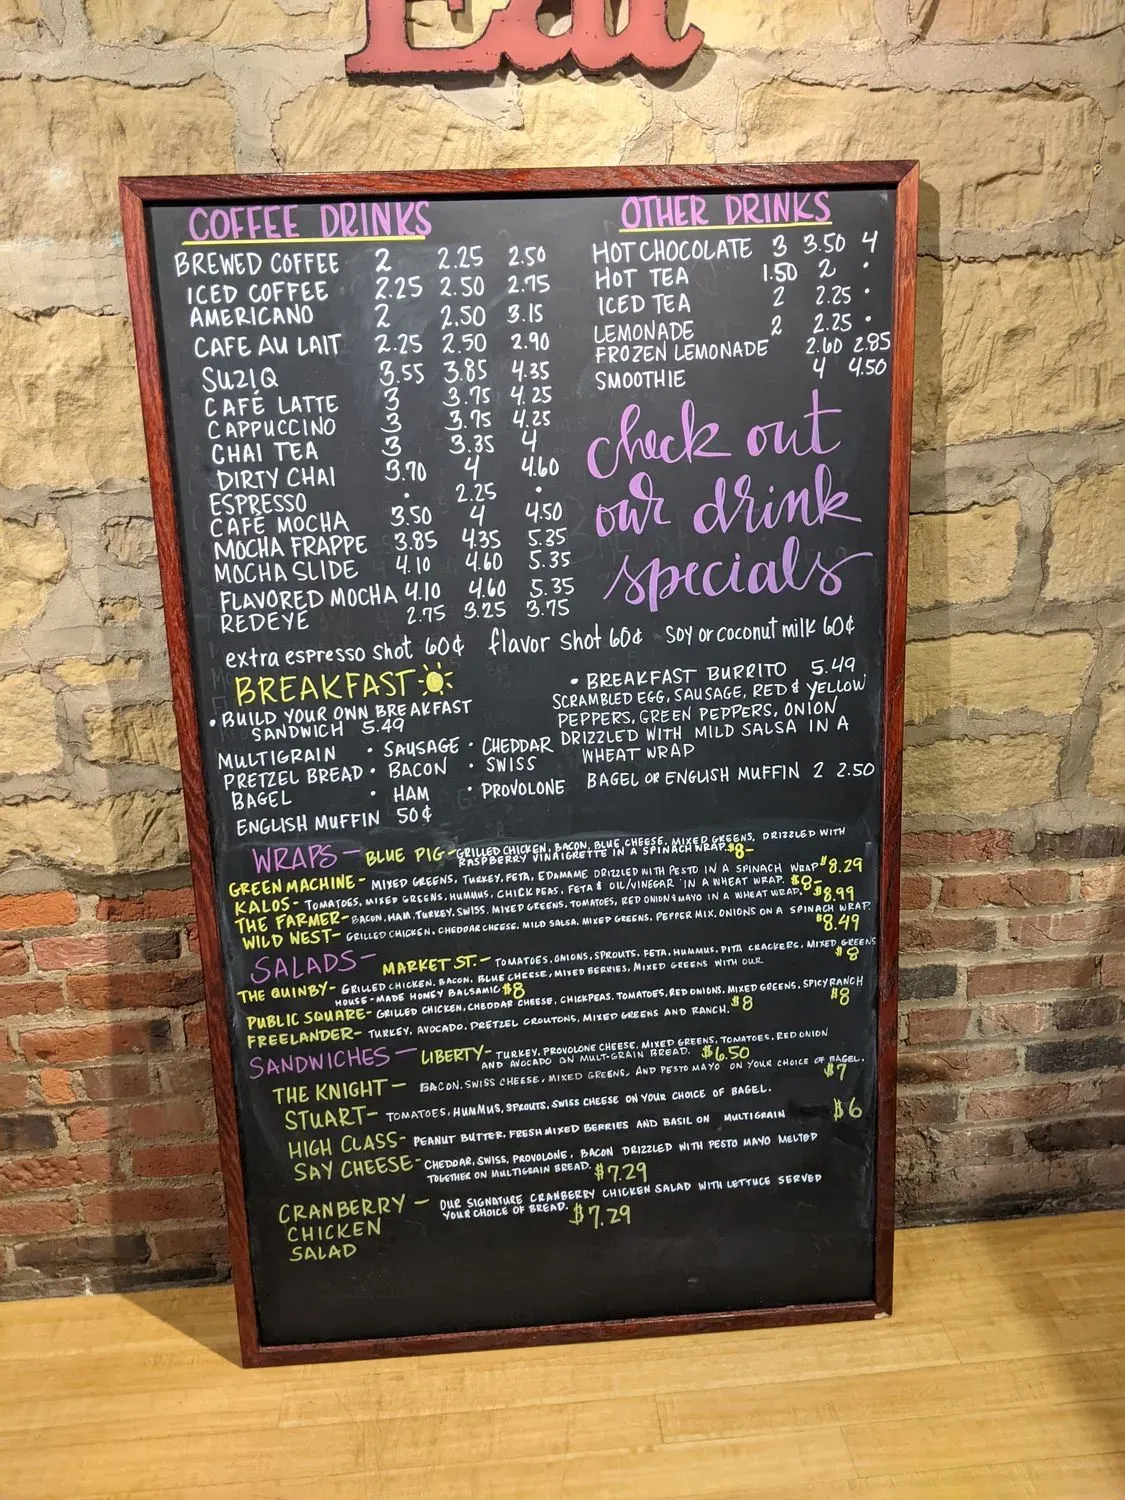 Eat
COFFEE DRINKS
BREWED COFFEE 2 2.25 2.50
ICED COFFEE 2.25 2.50 2.75
AMERICANO 2 2.50 3.15
CAFE AU LAIT 2.25 2.50 2.90
SUZIQ 3.55 3.85 4.35
CAFÉ LATTE 3 3.75 4.25
CAPPUCCINO 3 3.75 4.25
CHAI TEA 3 3.35 4
DIRTY CHAI 3.70 4 4.60
ESPRESSO • 2.25 •
CAFÉ MOCHA 3.50 4 4.50
MOCHA FRAPPE 3.85 4.35 5.35
MOCHA SLIDE 4.10 4.60 5.35
FLAVORED MOCHA 4.10 4.60 5.35
REDEYE 2.75 3.25 3.75
OTHER DRINKS
HOT CHOCOLATE 3 3.50 4
HOT TEA 1.50 2 •
ICED TEA 2 2.25 •
LEMONADE 2 2.25 •
FROZEN LEMONADE 2.60 2.85
SMOOTHIE 4 4.50
check out
our drink
specials
extra espresso shot 60¢ flavor shot 60¢ soy or coconut milk 60¢
BREAKFAST
• BUILD YOUR OWN BREAKFAST
SANDWICH 5.49
MULTIGRAIN • SAUSAGE • CHEDDAR
PRETZEL BREAD • BACON • SWISS
BAGEL • HAM • PROVOLONE
ENGLISH MUFFIN 50¢
• BREAKFAST BURRITO 5.49
SCRAMBLED EGG, SAUSAGE, RED & YELLOW
PEPPERS, GREEN PEPPERS, ONION
DRIZZLED WITH MILD SALSA IN A
WHEAT WRAP
BAGEL OR ENGLISH MUFFIN 2 2.50
WRAPS – BLUE PIG – GRILLED CHICKEN, BACON, BLUE CHEESE, MIXED GREENS, DRIZZLED WITH
RASPBERRY VINAIGRETTE IN A SPINACH WRAP. $8–
GREEN MACHINE – MIXED GREENS, TURKEY, FETA, EDAMAME DRIZZLED WITH PESTO IN A SPINACH WRAP $8.29
KALOS – TOMATOES, MIXED GREENS, HUMMUS, CHICK PEAS, FETA & OIL/VINEGAR IN A WHEAT WRAP. $8–
THE FARMER – BACON, HAM, TURKEY, SWISS, MIXED GREENS, TOMATOES, RED ONION & MAYO IN A WHEAT WRAP. $8.99
WILD WEST – GRILLED CHICKEN, CHEDDAR CHEESE, MILD SALSA, MIXED GREENS, PEPPER MIX, ONIONS ON A SPINACH WRAP.
$8.49
SALADS – MARKET ST. – TOMATOES, ONIONS, SPROUTS, FETA, HUMMUS, PITA CRACKERS, MIXED GREENS
$8
THE QUINBY – GRILLED CHICKEN, BACON, BLUE CHEESE, MIXED BERRIES, MIXED GREENS WITH OUR
HOUSE-MADE HONEY BALSAMIC $8
PUBLIC SQUARE – GRILLED CHICKEN, CHEDDAR CHEESE, CHICKPEAS, TOMATOES, RED ONIONS, MIXED GREENS, SPICY RANCH
$8
FREELANDER – TURKEY, AVOCADO, PRETZEL CROUTONS, MIXED GREENS AND RANCH. $8
SANDWICHES – LIBERTY – TURKEY, PROVOLONE CHEESE, MIXED GREENS, TOMATOES, RED ONION
AND AVOCADO ON MULT-GRAIN BREAD. $6.50
THE KNIGHT – BACON, SWISS CHEESE, MIXED GREENS, AND PESTO MAYO ON YOUR CHOICE OF BAGEL.
$7
STUART – TOMATOES, HUMMUS, SPROUTS, SWISS CHEESE ON YOUR CHOICE OF BAGEL.
HIGH CLASS – PEANUT BUTTER, FRESH MIXED BERRIES AND BASIL ON MULTIGRAIN $6
SAY CHEESE – CHEDDAR, SWISS, PROVOLONE, BACON DRIZZLED WITH PESTO MAYO MELTED
TOGETHER ON MULTIGRAIN BREAD. $7.29
CRANBERRY – OUR SIGNATURE CRANBERRY CHICKEN SALAD WITH LETTUCE SERVED
YOUR CHOICE OF BREAD. $7.29
CHICKEN
SALAD